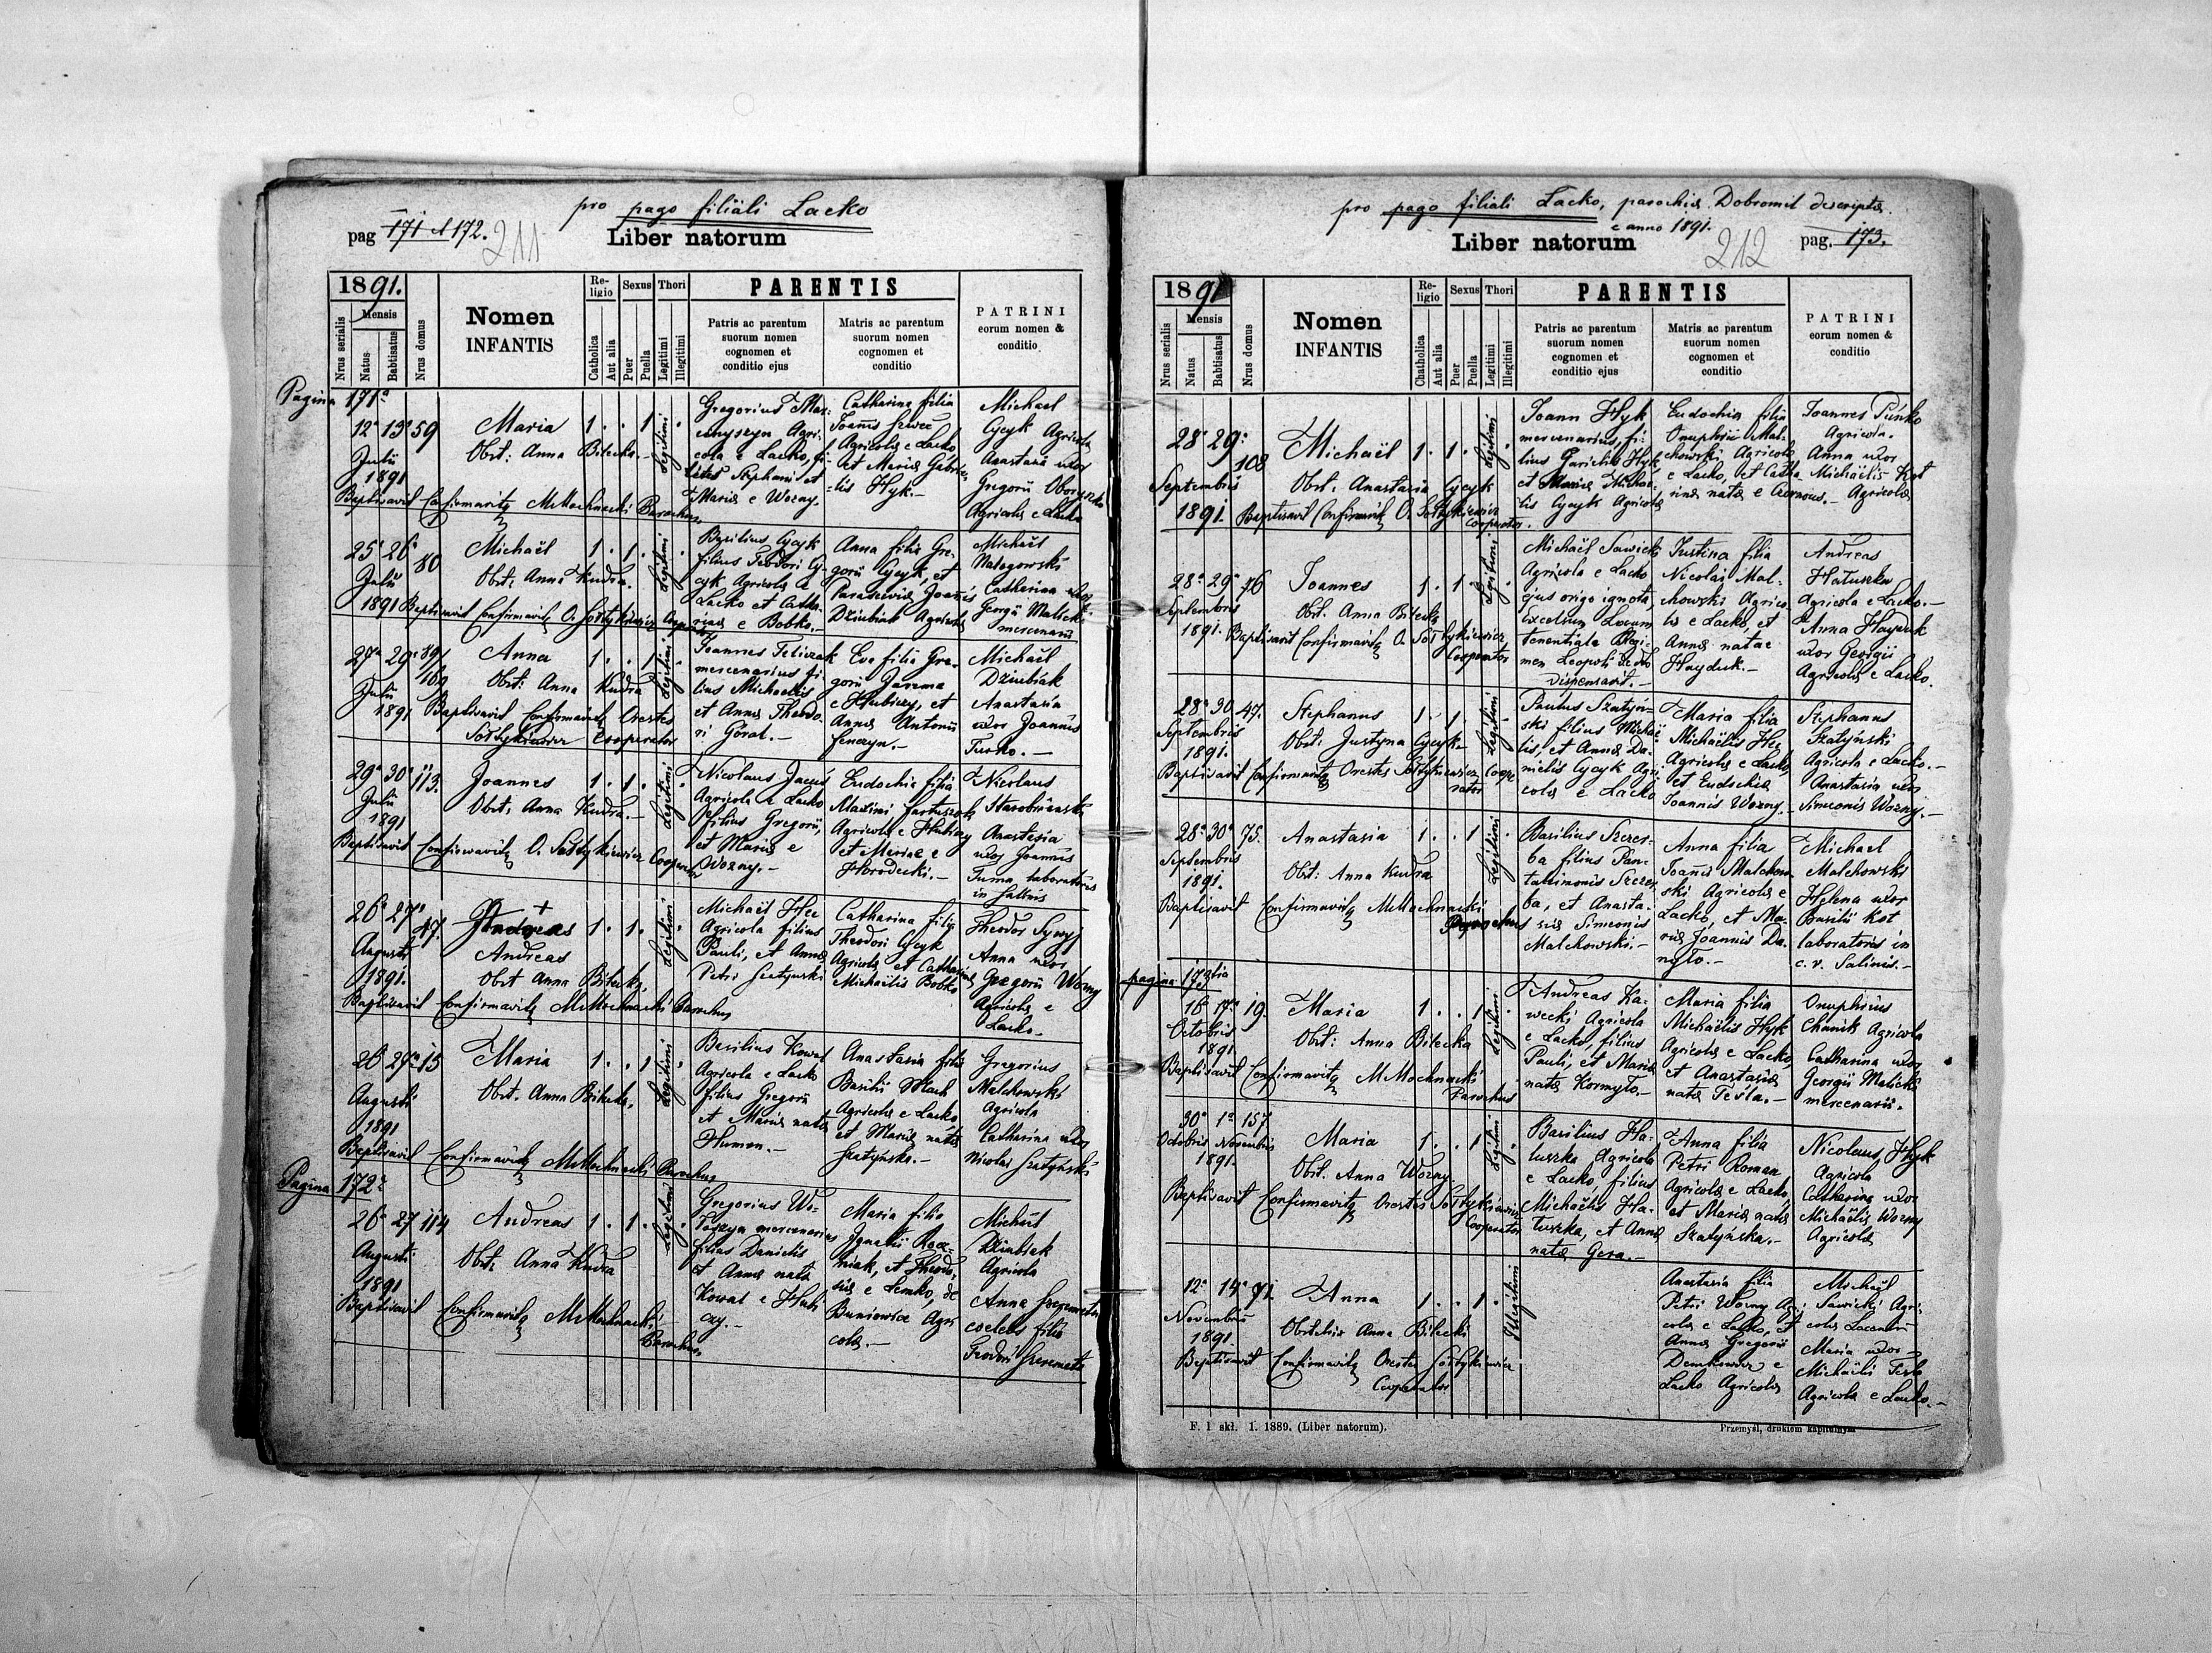 pro pago filiali Lacko
pag 171 et 172. 211
Liber natorum
1891.
Nrus serialis
Mensis
Natus
Babtisatus
Nrus domus
Nomen
INFANTIS
Religio
Catholica
Aut alia
Sexus
Puer
Puella
Thori
Legitimi
Illegitimi
PARENTIS
Patris ac parentum
suorum nomen
cognomen et
conditio ejus
Matris ac parentum
suorum nomen
cognomen et
conditio
PATRINI
eorum nomen &
conditio
Pagina 171a
12a 13a 59
Julii
1891
Maria
Obst: Anna Bilecka.
1 . . 1 Legitimi .
Agricola e Lacko, filius Stephani et
Maria e Wozny.
Catharina filia
Joannis Szwec
Agricola e Lacko
et Maria Gabrielis Hyk.-
Michael
Gycyk Agricola
Anastasia uxor
Gregorii
Agricola e Lacko
Baptisavit Confirmavitq M Mochnacki Parochus
25a 26a 80
Julii
1891
Michaël
Obst: Anna Kudra.
1 . 1 . Legitimi .
Basilius Gycyk
filius Teodori Gycyk Agricola e
Lacko et Catharina e Bobko.-
Anna filia Gregorii Gycyk, et
Parascevia Joannis
Dziubiak Agricola
Michaël
Catharina uxor
Georgii Malicki
mercenarii
Baptisavit Confirmavitq O. Sołtykiewicz
27a 29a 89/169
Julii
1891
Anna
Obst: Anna Kudra
1 . . 1 Legitimi .
Joannes Teliczak
mercenarius filius Michaelis
et Anna Theodori Góral.-
Eva filia Gregorii Jarema
e Hubiczy, et
Anna Antonii
Michaël
Dziubiak
Anastasia
uxor Joannis
Baptisavit Confirmavitq Orestes
Sołtykiewicz Cooperator
29a 30a 113.
Julii
1891
Joannes
Obst, Anna Kudra.-
1 . 1 . Legitimi .
Nicolaus
Agricola e Lacko
filius Gregorii,
et Maria e
Wozny.-
Eudochia filia
Maximi
Agricola e Hubiczy
et Mariae e
Horodecki.-
Nicolaus
Anastasia
uxor Joannis
Tuma laboratoris
in Salinis
Baptisavit Confirmavitq O. Sołtykiewicz Cooperator
26a 27a 47.
Augusti
1891.
Andreas
Andreas
Obst Anna Bilecka,
1 . 1 . Legitimi .
Michaël Hec
Agricola filius
Pauli, et Anna
Petri Szatynski
Catharina filia
Theodori Gycyk
Agricola, et Catharina
Michaëlis Bobko
Theodor
Anna uxor
Gregorii Wozny
Agricola e
Lacko.
Baptisavit Confirmavitq M Mochnacki Parochus
26 27a 15
Augusti
1891
Maria
Obst. Anna Bilecka,
1 . . 1 Legitimi .
Basilius Kowal
Agricola e Lacko
filius Gregorii
et Maria nata
Humen.-
Anastasia filia
Basilii Mach
Agricola e Lacko
et Maria nata
Szatyńska.-
Gregorius
Malchowski
Agricola
Catharina uxor
Nicolai Szatyński
Baptisavit Confirmavitq M Mochnacki Parochus
Pagina 172a
26a 27 114
Augusti
1891
Andreas
Obst, Anna Kudra
1 . 1 . Legitimi .
Gregorius Wołoszyn mercenarius
filius Danielis
et Anna nata
Kowal e Hubiczy.-
Maria filia
Ignatii
et Theodosia e Lemko, de
Buniowice Agricola.-
Michaël
Dziubiak
Agricola
Anna Szeremeta
coelebs filia
Teodori Szeremeta
Baptisavit Confirmavitq M Mochnacki
Parochus
pro pago filiali Lacko, parochia Dobromil descripta
e anno 1891.
Liber natorum
212
pag. 173.
1891
Nrus serialis
Mensis
Natus
Babtisatus
Nrus domus
Nomen
INFANTIS
Religio
Chatholica
Aut alia
Sexus
Puer
Puella
Thori
Legitimi
Illegitimi
PARENTIS
Patris ac parentum
suorum nomen
cognomen et
conditio ejus
Matris ac parentum
suorum nomen
cognomen et
conditio
PATRINI
eorum nomen &
conditio
28a 29a 108
Septembris
1891.
Michaël
Obst. Anastasia Gycyk
1 . 1 . Legitimi .
Joann Hyk
mercenarius, filius Gabrielis Hyk
et Maria Michaelis Gycyk Agricola
Eudochia filia
Onuphrii Malchowski Agricola
e Lacko, et Catharina nata e Czornous.-
Joannes Puńko
Agricola.
Anna uxor
Michaëlis Kot
Agricola
Baptisavit Confirmavitq O. Sołtykiewicz
Cooperator.
28a 29a 76
Septembris
1891.
Joannes
Obst. Anna Bilecka
1 . 1 . Legitimi
Michaël Sawicki
Agricola e Lacko
ejus origo ignota,
Excelsum Locumtenentiale Regimen Leopoli
dispensavit.-
Justina filia
Nicolai Malchowski Agricolis e Lacko, et
Anna natae
Hayduk.-
Andreas
Hałuszka
Agricola e Lacko.-
Anna Hayduk
uxor Georgii
Agricola e Lacko.
Baptisavit Confirmavitq O. Sołtykiewicz
Cooperator
28a 30 47.
Septembris
1891.
Stephanus
Obst: Justyna Gycyk.
1 . 1 . Legitimi .
Paulus Szatyński filius Michaëlis, et Anna Danielis Gycyk Agricola e Lacko
Maria filia
Michaëlis Hec
Agricola e Lacko,
et Eudochia
Joannis Wozny.
Stephanus
Szatyński
Agricola e Lacko.-
Anastasia uxor
Simeonis Wozny.-
Baptisavit Confirmavitq Orestes Sołtykiewicz Cooperator
28a 30a 75.
Septembris
1891.
Anastasia
Obst: Anna Kudra
1 . . 1 Legitimi .
Basilius Szczerba filius Pantalimonis Szczerba, et Anastasia Simeonis
Malchowski.-
Anna filia
Joannis Malchowski Agricola e
Lacko, et Maria Joannis Danyło.-
Michael
Malchowski
Helena uxor
Basilii Kot
laboratoris in
c. v. Salinis.-
Baptisavit Confirmavitq M Mochnacki
Parochus
pagina 173tia
16 17a 19.
Octobris
1891
Maria
Obst: Anna Bilecka
1 . . 1 Legitimi .
Andreas Kawecki Agricola
e Lacko, filius
Pauli, et Maria
nata Kormyło.-
Maria filia
Michaëlis Hyk
Agricola e Lacko,
et Anastasia
nata Tesla.-
Onuphrius
Chanik Agricola
Catharina uxor
Georgii Malicki
mercenarii.
Baptisavit Confirmavitq M Mochnacki
Parochus
30a 1a 157.
Octobris Novembris
1891.
Maria
Obst. Anna Wozny
1 . . 1 Legitimi .
Basilius Hałuszka Agricola
e Lacko, filius
Michaëlis Hałuszka, et Anna
nata Gera.-
Anna filia
Petri Roman
Agricola e Lacko,
et Maria nata
Szatyńska.-
Nicolaus Hyk
Agricola
Catharina uxor
Michaëlis Wozny
Agricola
Baptisavit Confirmavitq Orestes Sołtykiewicz
Cooperator
12a 14a 71.
Novembris
1891
Anna
Obstetrix Anna Bilecki
1 . . 1 . Illegitimi
Anastasia filia
Petri Wozny Agricola e Lacko, et
Anna Gregorii
e
Lacko Agricola
Michaël
Sawicki Agricola
Maria uxor
Michaëlis Tesla
Agricola e Lacko.-
Baptisavit Confirmavitq Orestes Sołtykiewicz
Cooperator
F. 1 skł. 1. 1889. (Liber natorum).
Przemyśl, drukiem kapitulnym